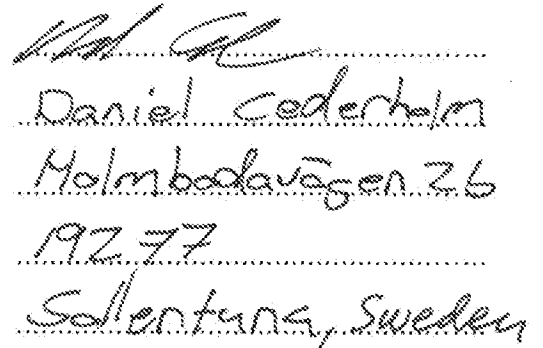 Daniel Cederholm
Holmbodavägen 26
192 77
Sollentuna, Sweden